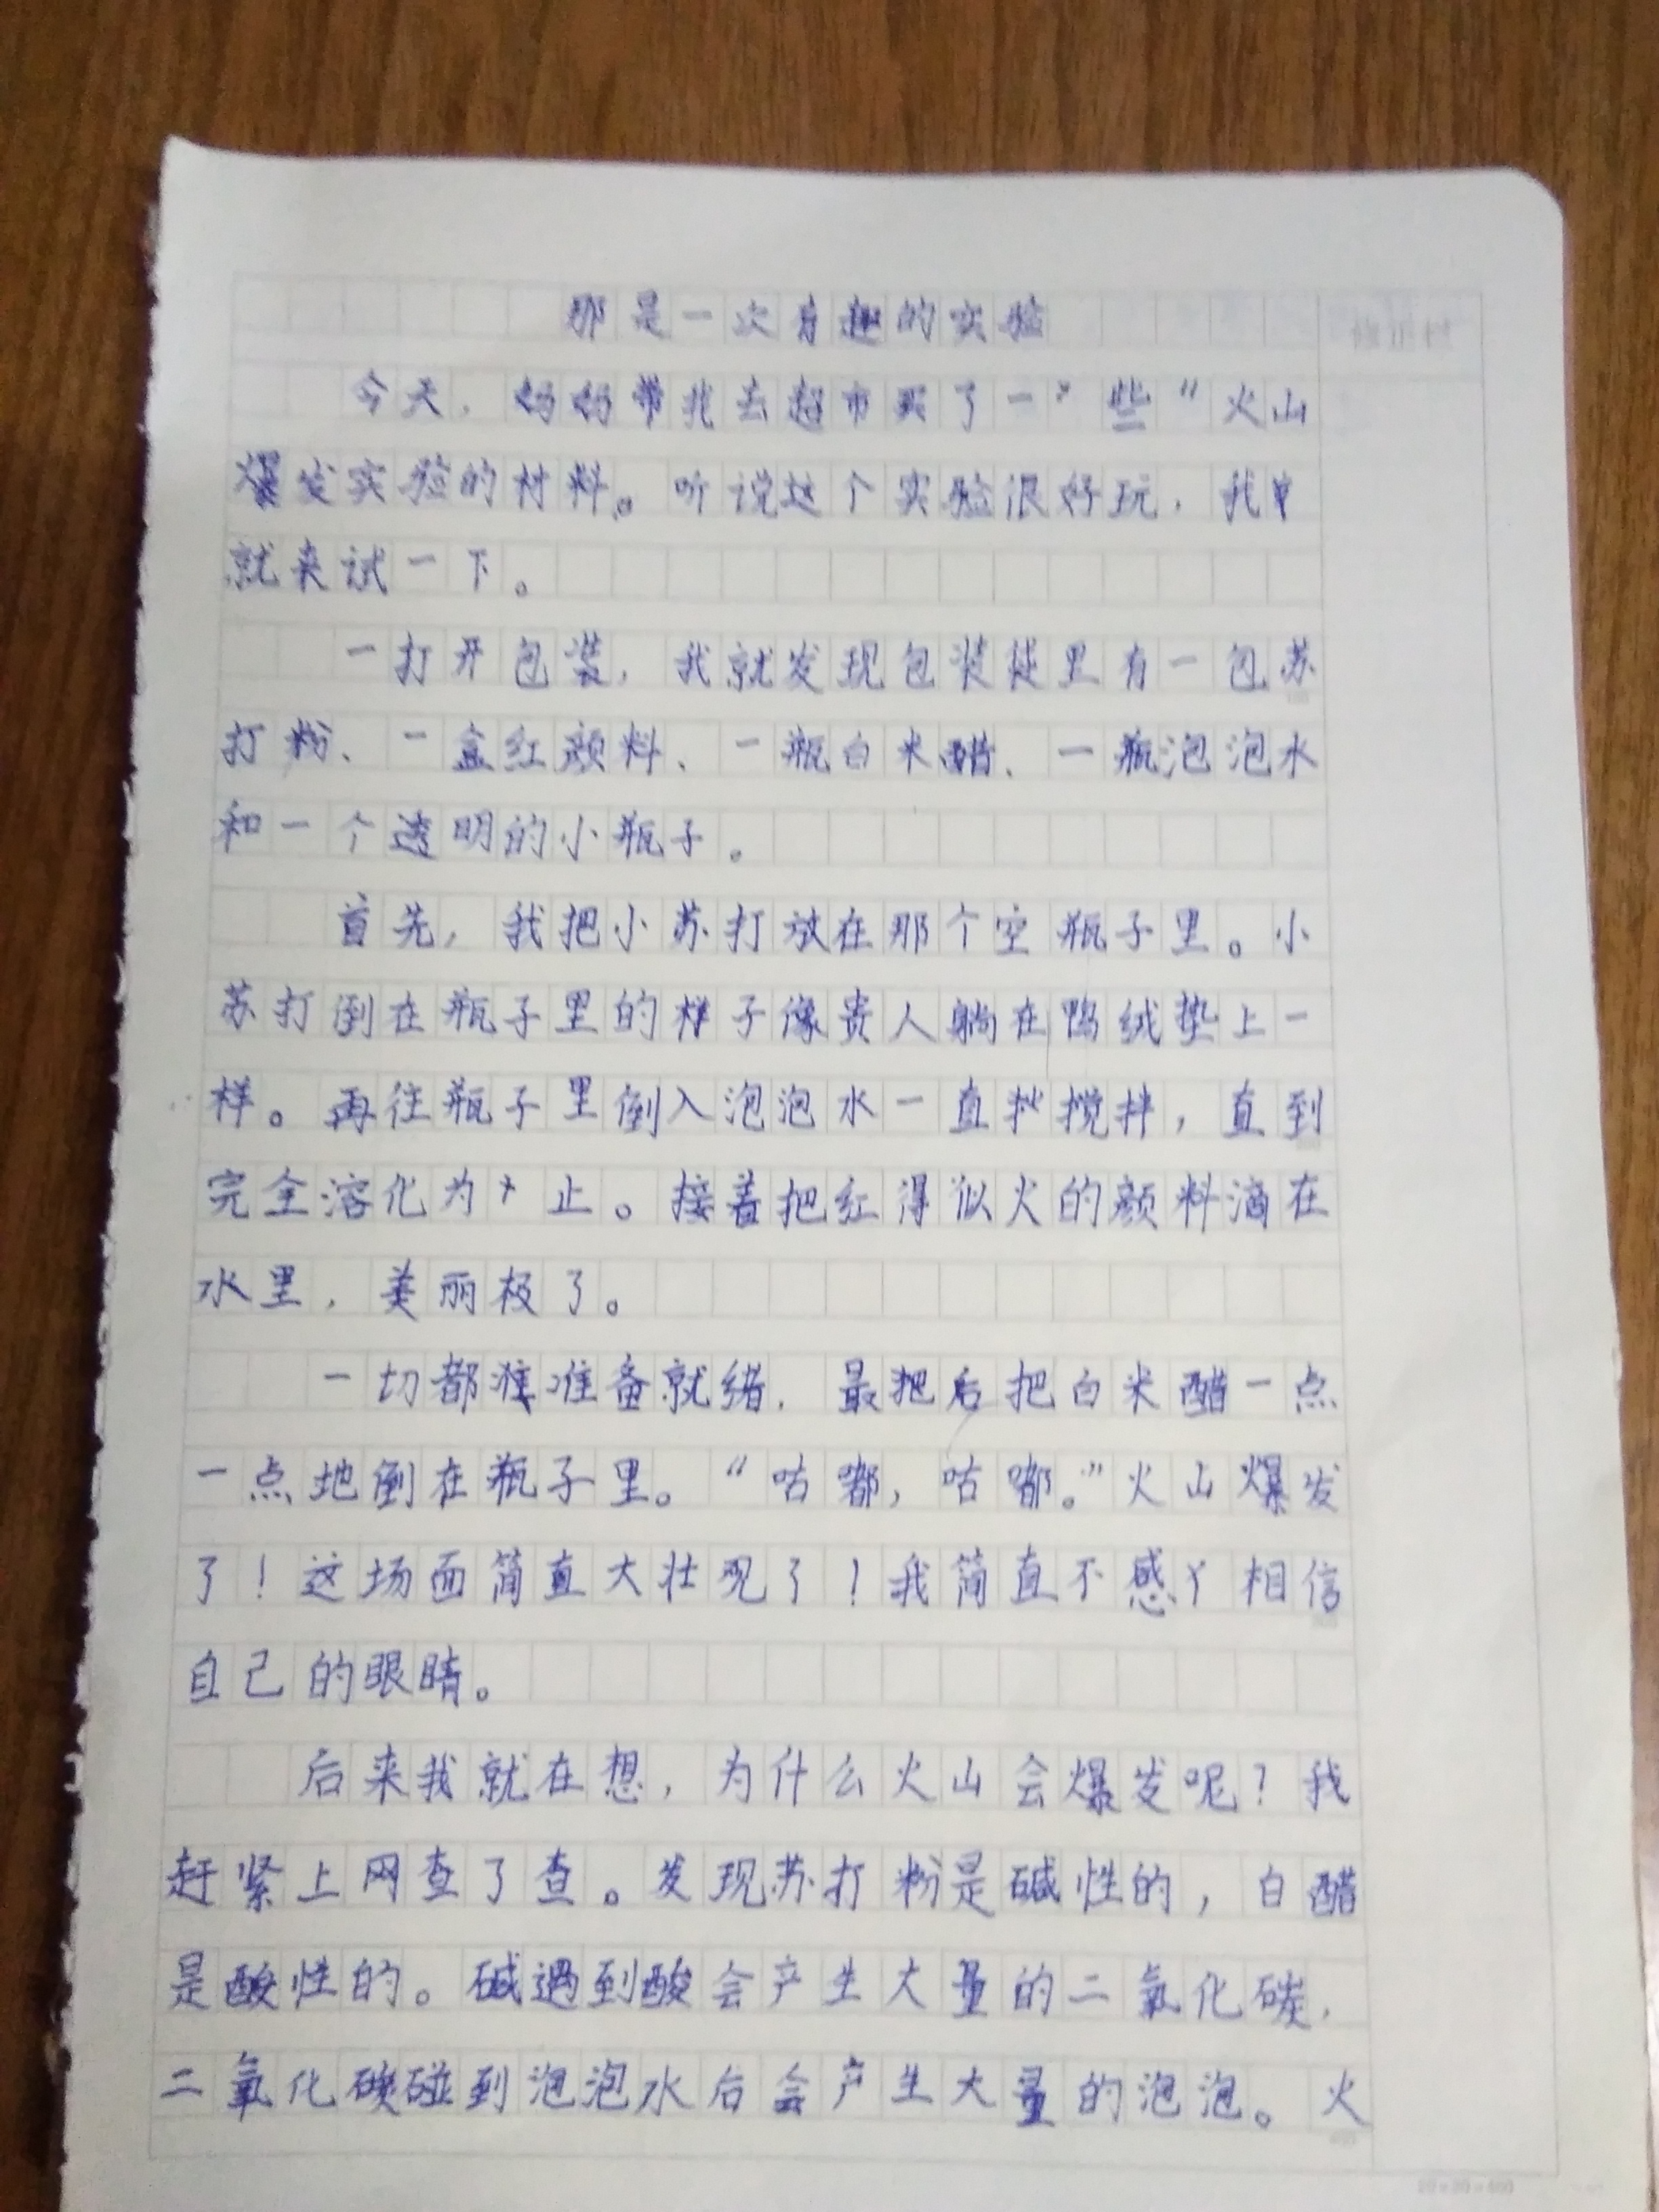 那是一次有趣的实验
今天，妈妈带我去超市买了一些“火山
爆发实验的材料。听说这个实验很好玩，我
就来试一下。
一打开包装，我就发现包装袋里有一包苏
打粉、一盒红颜料、一瓶白米醋、一瓶泡泡水
和一个透明的小瓶子。
首先，我把小苏打放在那个空瓶子里。小
苏打倒在瓶子里的样子像贵人躺在鸭绒垫上一
样。再往瓶子里倒入泡泡水一直搅拌，直到
完全溶化为止。接着把红得似火的颜料滴在
水里，美丽极了。
一切都准准备就绪，最把后把白米醋一点
一点地倒在瓶子里。“咕嘟，咕嘟。”火山爆发
了！这场面简直大壮观了！我简直不感相信
自己的眼睛。
后来我就在想，为什么火山会爆发呢？我
赶紧上网查了查。发现苏打粉是碱性的，白醋
是酸性的。碱遇到酸会产生大量的二氧化碳，
二氧化碳碰到泡泡水后会产生大量的泡泡。火